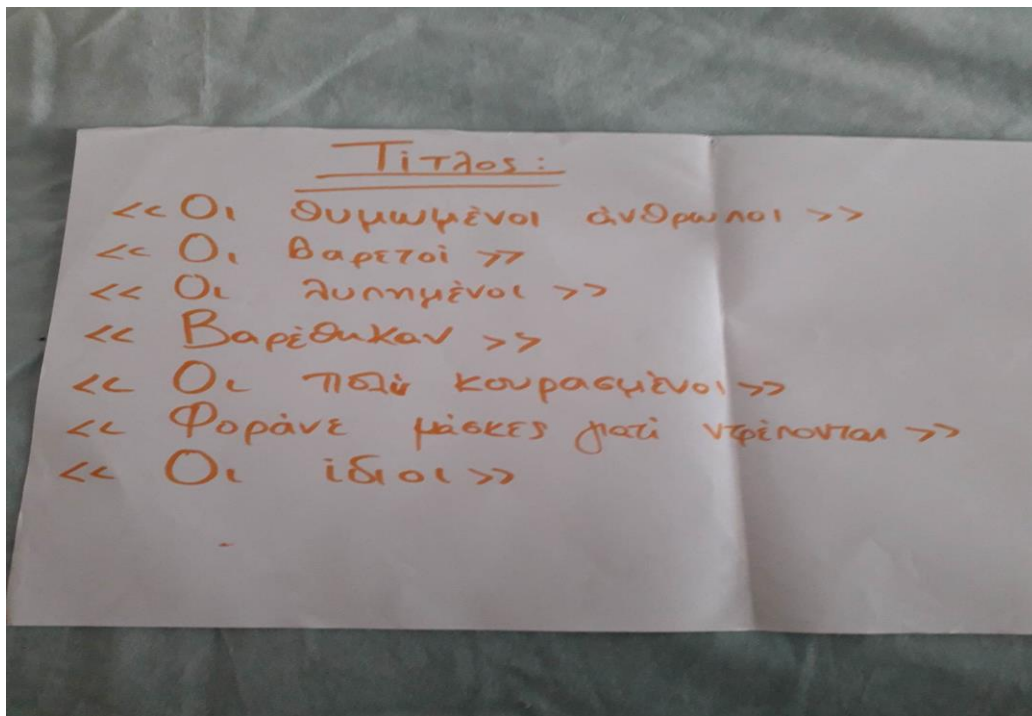 Τίτλος:
<< Οι θυμωμένοι άνθρωποι >>
<< Οι Βαρετοί >>
<< Οι λυπημένοι >>
<< Βαρέθηκαν >>
<< Οι πολύ κουρασμένοι >>
<< Φοράνε μάσκες γιατί ντρέπονται >>
<< Οι ίδιοι >>